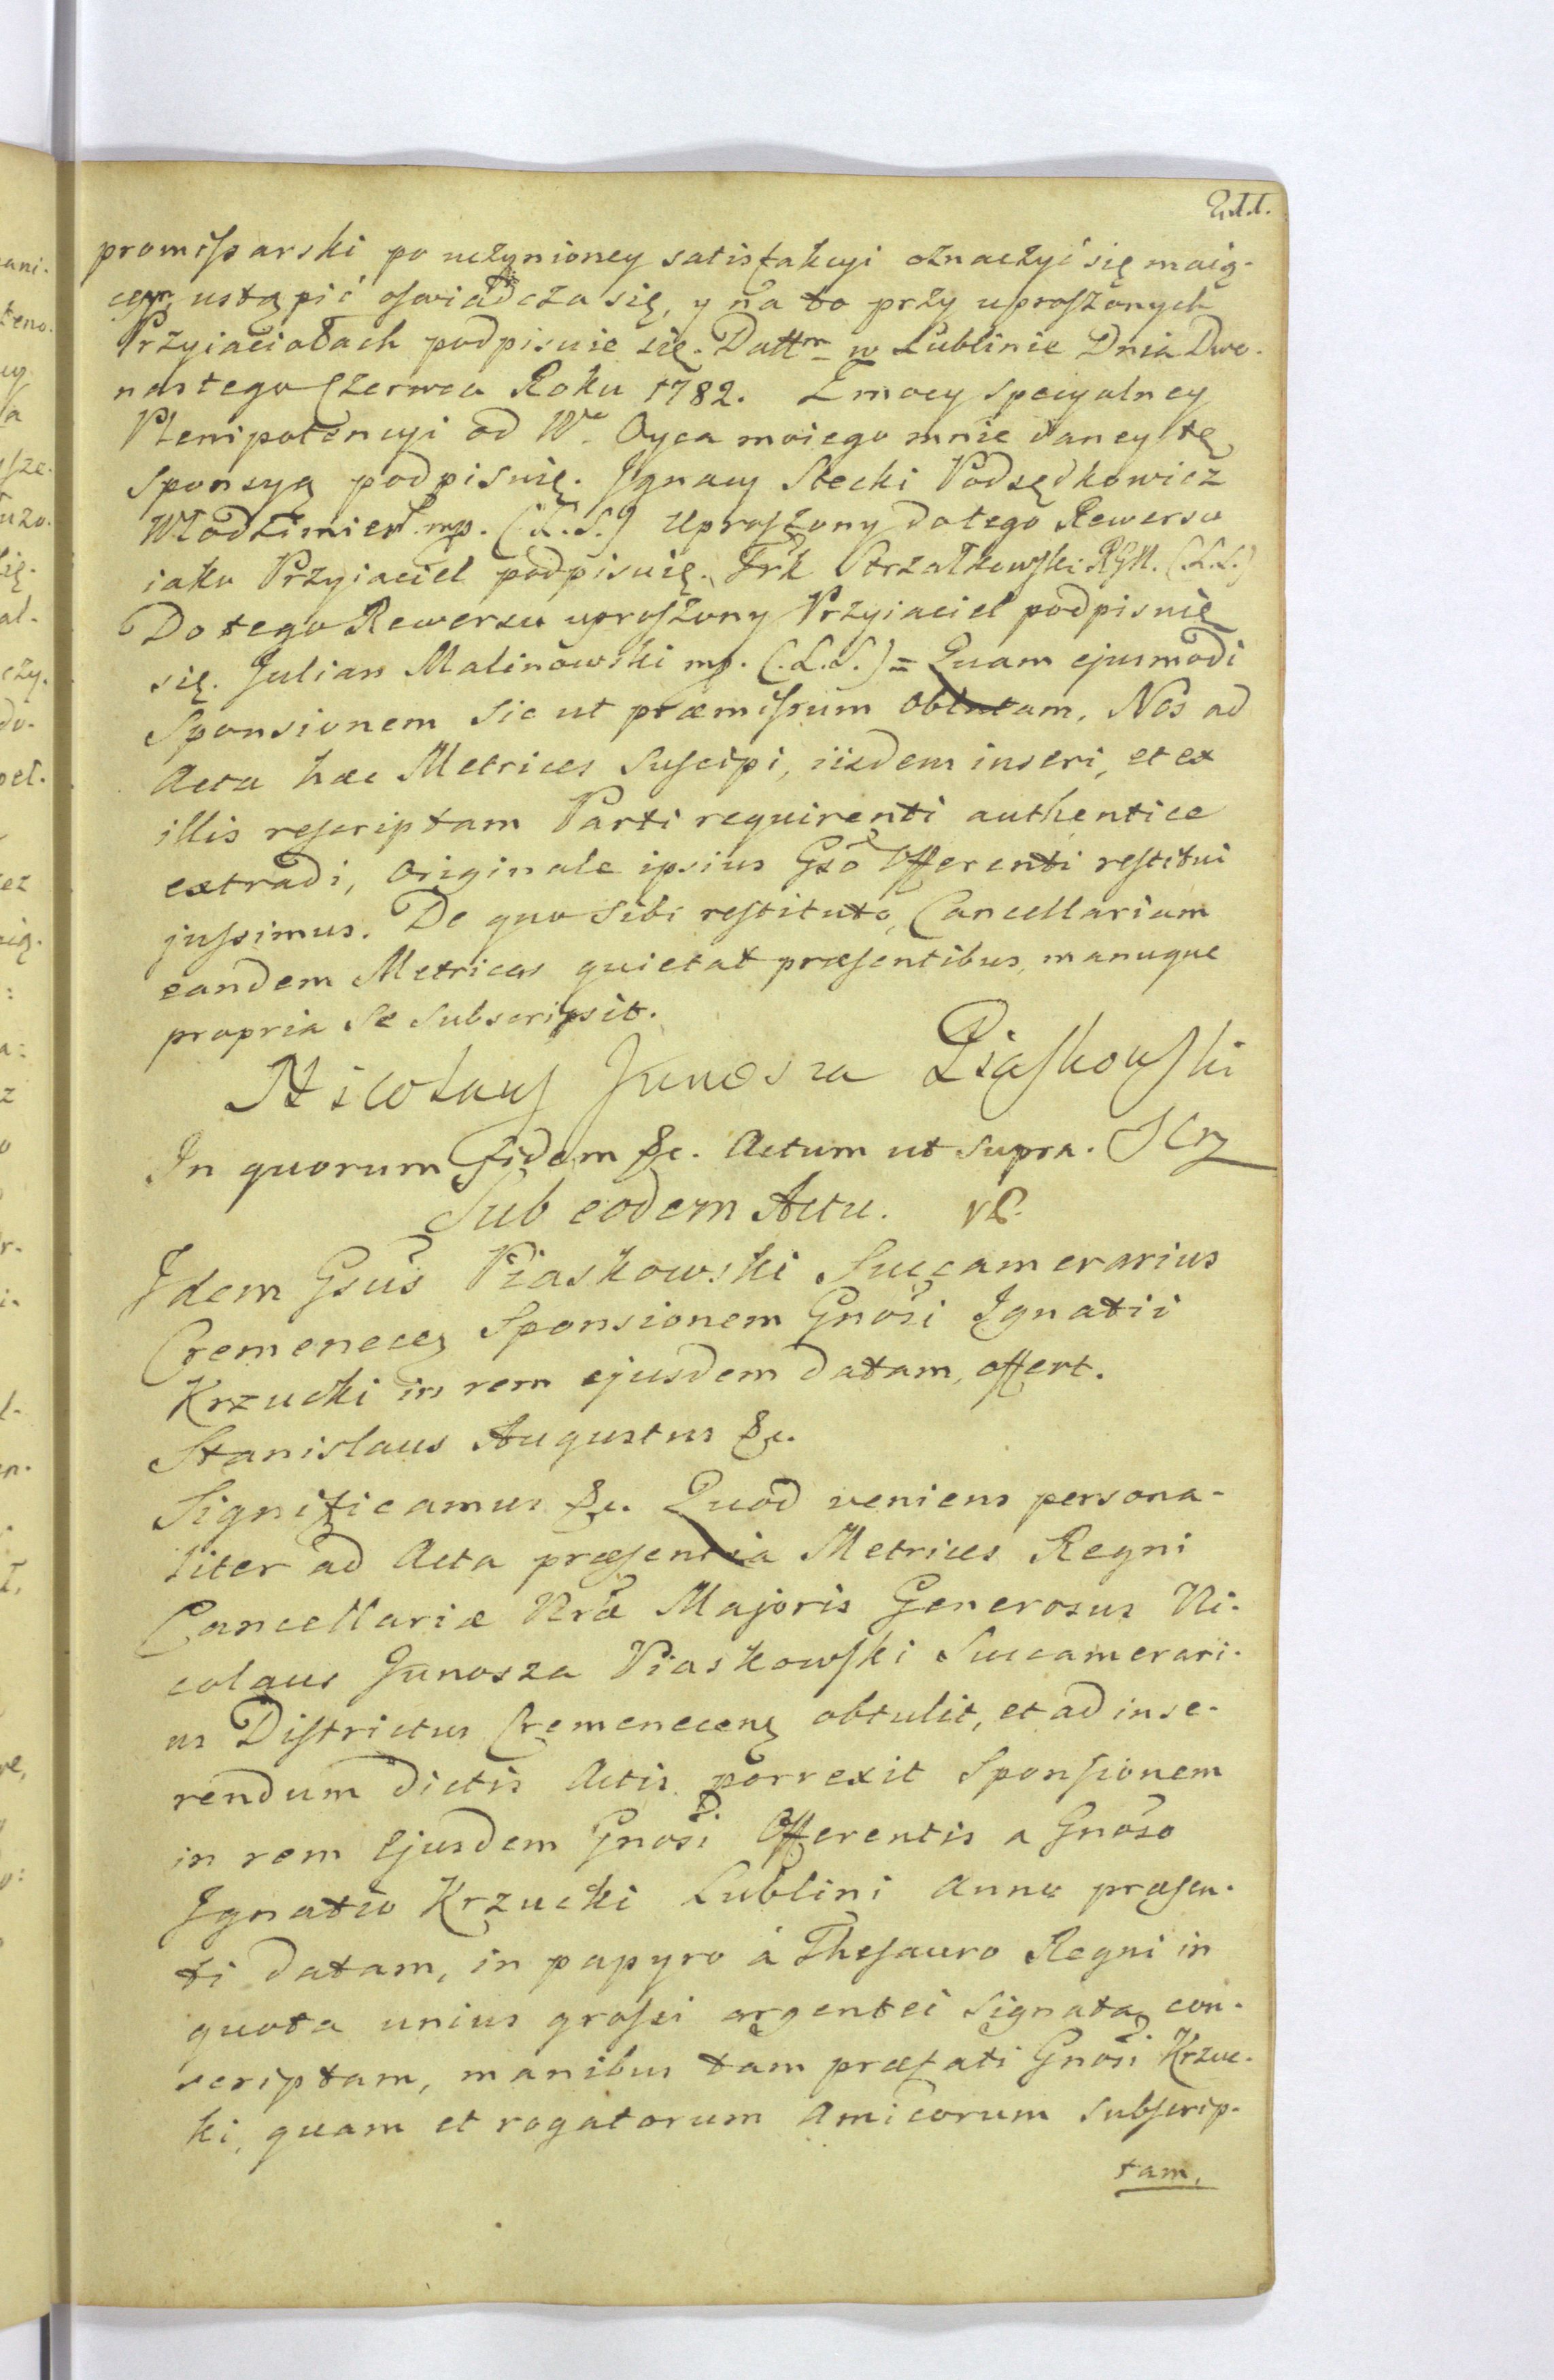 211.
promissarski po uczynioney satisfakcyi oznaczyć się maią-
cym ustąpić oswiadcza się, y na to przy uproszonych
Przyiaciołach podpisuie się. Dattm w Lublinie Dnia Dwu-
nastego Czerwca Roku 1782. Z mocy specyalney
Plenipotencyi od We. Oyca moiego mnie daney tę
Sponsyą podpisuię. Ignacy Stecki Podsędkowicz
Włodzimier. mp. (L.S.) Uproszony do tego Rewersu
iako Przyiaciel podpisuię. Frk Strzałkowski RGK. (L.S.)
Do tego Rewersu uproszony Przyiaciel podpisuię
się. Julian Malinowski mp. (.L.S.) = Quam ejusmodi
Sponsionem sic ut præmissum oblatam, Nos ad
Acta hæc Metrices suscipi, iisdem inseri, et ex
illis rescriptam Parti requirenti authentice
extradi, Originale ipsius Gso Offerenti restitui
jussimus. De quo sibi restituto, Cancellariam
eandem Metrices quietat præsentibus, manuque
propria se subscripsit.
Nicolaus Junosza Piaskowski
In quorum fidem &c. Actum ut supra.
Sub eodem Actu.
Idem Gsus Piaskowski Succamerarius
Cremenecen Sponsionem Gnosi Ignatii
Krzucki in rem ejusdem datam, offert.
Stanislaus Augustus &c.
Significamus &c. Quod veniens persona-
liter ad Acta præsentia Metrices Regni
Cancellariæ Nræ Majoris Generosus Ni-
colaus Junosza Piaskowski Succamerari-
us Districtus Cremenecens obtulit, et ad inse-
rendum dictis Actis porrexit Sponsionem
in rem Ejusdem Gnosi Offerentis a Gnoso
Ignatio Krzucki Lublini Anno præsen-
ti datam, in papyro à Thesauro Regni in
quota unius grossi argentei signata con-
scriptam, manibus tam præfati Gnosi Krzuc-
ki, quam et rogatorum Amicorum subscrip-
tam,